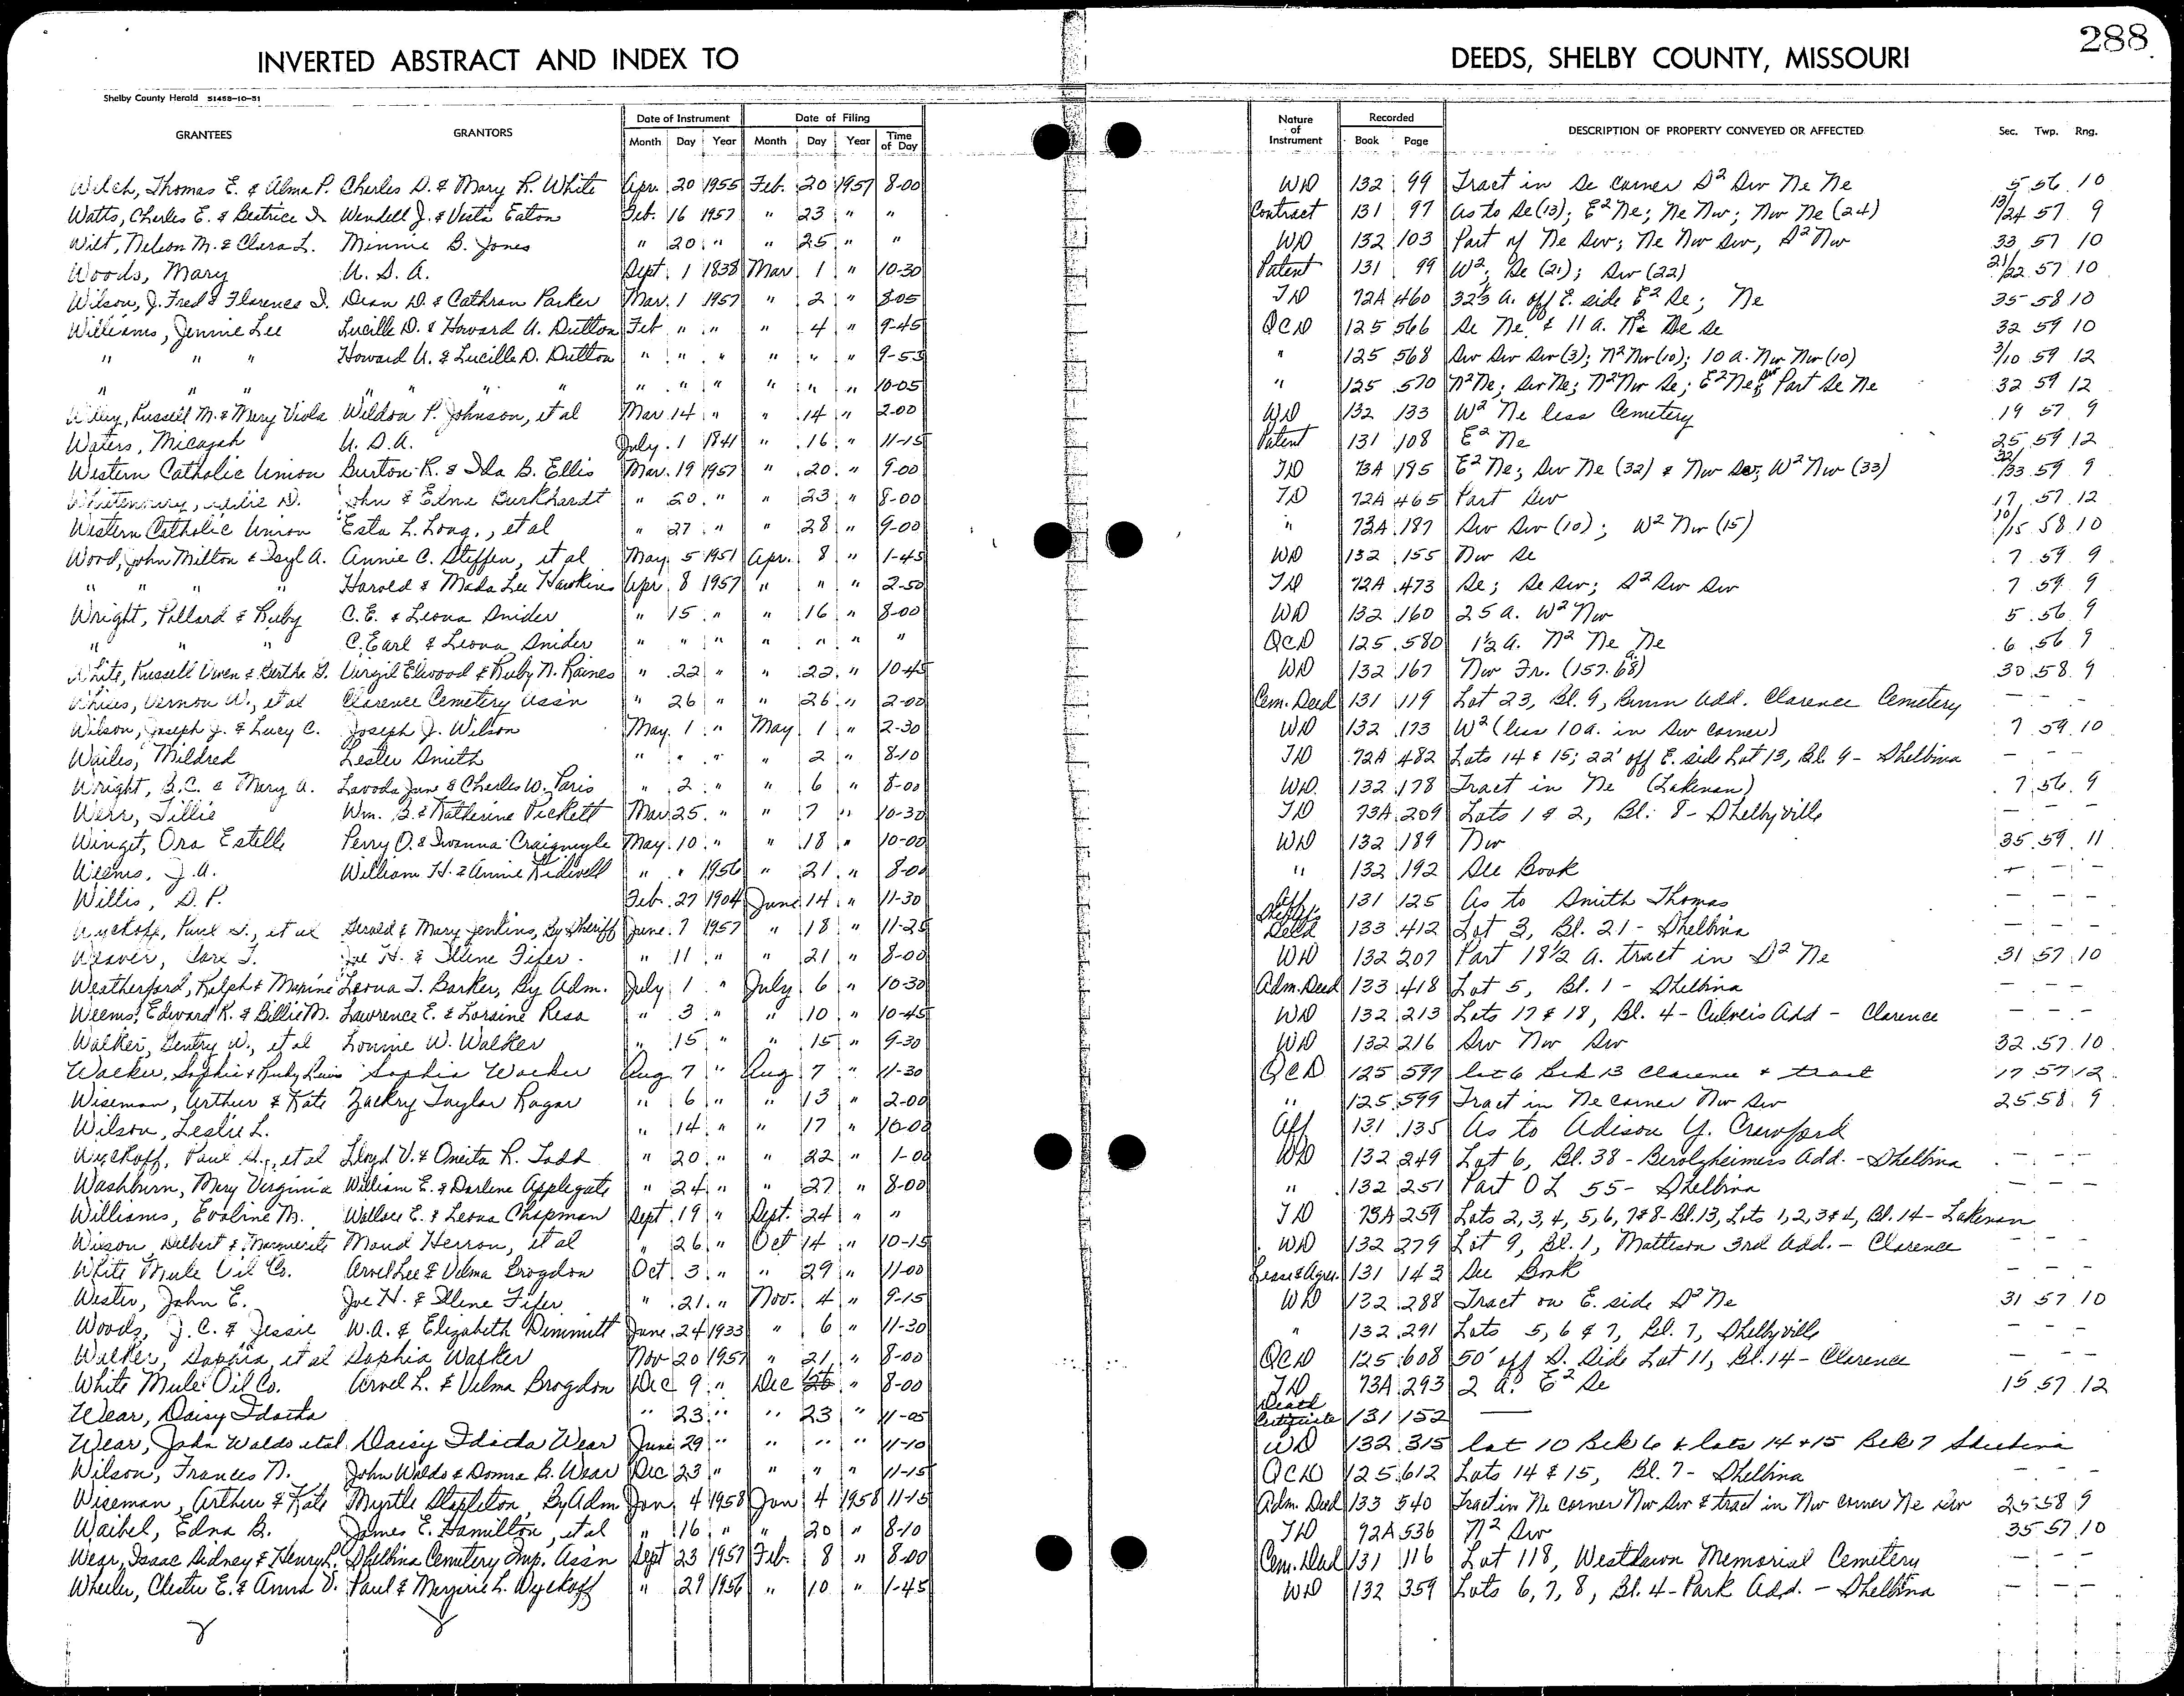 288
INVERTED ABSTRACT AND INDEX TO DEEDS, SHELBY COUNTY, MISSOURI
Shelby County Herald 51458-10-51
GRANTEES GRANTORS Date of Instrument Date of Filing Nature of Instrument Recorded DESCRIPTION OF PROPERTY CONVEYED OR AFFECTED Sec. Twp. Rng.
Month Day Year Month Day Year Time of Day Book Page
Welch, Thomas E. & Alma P. Charles D. & Mary R. White Apr. 20 1955 Feb. 20 1957 8-00 WD 132 99 Tract in Se corner S² Sw Ne Ne 5 56 10
Watts, Charles E. & Beatrice I. Wendell J. & Vesta Eaton Feb. 16 1957 " 23 " " Contract 131 97 As to Se (13); E² Ne; Ne Nw; Nw Ne (24) 13/24 57 9
Wilt, Nelson M. & Clara L. Minnie B. Jones " 20 " " 25 " " WD 132 103 Part of Ne Sw; Ne Nw Sw, S² Nw 33 57 10
Woods, Mary U. S. A. Sept. 1 1838 Mar 1 " 10-30 Patent 131 99 W², Se (21); Sw (22) 21/22 57 10
Wilson, J. Fred & Florence I. Dean D. & Cathran Parker Mar. 1 1957 " 2 " 8-05 TD 72A 460 32⅓ a. off E. side E² Se; Ne 35 58 10
Williams, Jennie Lee Lucille D. & Howard A. Dutton Feb " " " 4 " 9-45 QCD 125 566 Se Ne & 11 a. N² Se Se 32 59 10
" " " Howard A. & Lucille D. Dutton " " " " " " 9-55 " 125 568 Sw Sw Sw (3); N² Nw (10); 10 a. Nw Nw (10) 3/10 59 12
" " " " " " " " " " " " " 10-05 " 125 570 N² Ne; Sw Ne; N² Nw Se; E² Ne Part Se Ne 32 59 12
Russell M. & Mary Viola Weldon P. Johnson, et al Mar 14 " " 14 " 2-00 WD 132 133 W² Ne less Cemetery 19 57 9
Waters, Micajah U. S. A. July 1 1841 " 16 " 11-15 Patent 131 108 E² Ne 25 59 12
Western Catholic Union Burton R. & Ida B. Ellis Mar. 19 1957 " 20 " 9-00 TD 73A 185 E² Ne; Sw Ne (32) & Nw Se; W² Nw (33) 32/33 59 9
John & Edna Burkhardt " 20 " " 23 " 8-00 TD 72A 465 Part Sw 17 57 12
Western Catholic Union Esta L. Long, et al " 27 " " 28 " 9-00 " 73A 187 Sw Sw (10); W² Nw (15) 10/15 58 10
Wood, John Milton & Isyl A. Annie C. Steffen, et al May 5 1951 Apr. 8 " 1-45 WD 132 155 Nw Se 7 59 9
" " " " Harold & Mada Lee Hawkins Apr 8 1957 " " " 2-50 TD 72A 473 Se; Se Sw; S² Sw Sw 7 59 9
Wright, Pollard & Ruby C. E. & Leona Snider " 15 " " 16 " 8-00 WD 132 160 25 a. W² Nw 5 56 9
" " " C. Earl & Leona Snider " " " " " " " QCD 125 580 1½ a. N² Ne Ne 6 56 9
White, Russell Owen & Bertha G. Virgil Elwood & Ruby N. Raines " 22 " " 22 " 10-45 WD 132 167 Nw Fr. (157.68 a.) 30 58 9
Vernon W., et al Clarence Cemetery Ass'n " 26 " " 26 " 2-00 Cem. Deed 131 119 Lot 23, Bl. 9, Add. Clarence Cemetery - - -
Wilson, Joseph J. & Lucy C. Joseph J. Wilson May 1 " May 1 " 2-30 WD 132 173 W² (less 10 a. in Sw corner) 7 59 10
Wailes, Mildred Lester Smith " " " " 2 " 8-10 TD 72A 482 Lots 14 & 15; 22' off E. side Lot 13, Bl. 9 - Shelbina - - -
Wright, B.C. & Mary A. Lavoda June & Charles W. Paris " 2 " " 6 " 8-00 WD. 132 178 Tract in Ne (Lakenan) 7 56 9
Werr, Tillie Wm. B. & Katherine Pickett Mar 25 " " 7 " 10-30 TD 73A 209 Lots 1 & 2, Bl. 8 - Shelbyville - - -
Winget, Ora Estelle Perry O. & Iwanna Craigmyle May 10 " " 18 " 10-00 WD 132 189 Nw 35 59 11
Weems, J. A. William H. & Annie Kidwell " " 1956 " 21 " 8-00 " 132 192 See Book - - -
Willis, D. P. Feb. 27 1904 June 14 " 11-30 Aff 131 125 As to Smith Thomas - - -
Wyckoff, Paul S., et al Gerald & Mary Jenkins, By Sheriff June 7 1957 " 18 " 11-25 Sheriff's Deed 133 412 Lot 3, Bl. 21 - Shelbina - - -
Weaver, T. Joe H. & Ilene Fifer " 11 " " 21 " 8-00 WD 132 207 Part 18½ a. tract in S² Ne 31 57 10
Weatherford, Ralph & Maxine Leona T. Barker, By Adm. July 1 " July 6 " 10-30 Adm. Deed 133 418 Lot 5, Bl. 1 - Shelbina - - -
Weems, Edward K. & Billie M. Lawrence E. & Loraine Resa " 3 " " 10 " 10-45 WD 132 213 Lots 17 & 18, Bl. 4 - Culver's Add - Clarence - - -
Walker, Gentry W., et al Lonnie W. Walker " 15 " " 15 " 9-30 WD 132 216 Sw Nw Sw 32 57 10
Walker, Sophia & Ruby Sophia Walker Aug 7 " Aug 7 " 11-30 QCD 125 597 lot 6 Blk 13 Clarence & tract 17 57 12
Wiseman, Arthur & Kate Zackry Taylor Ragar " 6 " " 13 " 2-00 " 125 599 Tract in Ne corner Nw Sw 25 58 9
Wilson, Leslie L. " 14 " " 17 " 10-00 Aff 131 135 As to Adison Y. Crawford
Wyckoff, Paul S., et al Lloyd V. & Oneita R. Todd " 20 " " 22 " 1-00 WD 132 249 Lot 6, Bl. 38 - Berolzheimers Add. - Shelbina - - -
Washburn, Mary Virginia William E. & Darlene Applegate " 24 " " 27 " 8-00 " 132 251 Part O L 55 - Shelbina - - -
Williams, Evaline M. Wallace E. & Leona Chapman Sept. 19 " Sept. 24 " " TD 73A 259 Lots 2, 3, 4, 5, 6, 7 & 8 - Bl. 13, Lots 1, 2, 3 & 4, Bl. 14 - Lakenan
Wilson, Delbert & Marguerite Maud Herron, et al " 26 " Oct 14 " 10-15 WD 132 279 Lot 9, Bl. 1, Mattison 3rd Add. - Clarence - - -
White Mule Oil Co. Arvel Lee & Velma Brogdon Oct 3 " " 29 " 11-00 Lease & Agree. 131 143 See Book - - -
Wester, John E. Joe H. & Ilene Fifer " 21 " Nov. 4 " 9-15 WD 132 288 Tract on E. side S² Ne 31 57 10
Woods, J. C. & Jessie W. A. & Elizabeth Dimmitt June 24 1933 " 6 " 11-30 " 132 291 Lots 5, 6 & 7, Bl. 7, Shelbyville - - -
Walker, Sophia, et al Sophia Walker Nov 20 1957 " 21 " 8-00 QCD 125 608 50' off S. Side Lot 11, Bl. 14 - Clarence - - -
White Mule Oil Co. Arvel L. & Velma Brogdon Dec 9 " Dec " 8-00 TD 73A 293 2 a. E² Se 15 57 12
Wear, Daisy Idacta " 23 " " 23 " 11-05 Death Certificate 131 152 —
Wear, John Waldo et al Daisy Idacta Wear June 29 " " " " 11-10 WD 132 315 lot 10 Blk 6 & lots 14 + 15 Blk 7 Shelbina
Wilson, Frances N. John Waldo & Donna B. Wear Dec 23 " " " " 11-15 QCD 125 612 Lots 14 & 15, Bl. 7 - Shelbina - - -
Wiseman, Arthur & Kate Myrtle Stapleton, By Adm Jan 4 1958 Jan 4 1958 11-15 Adm. Deed 133 540 Tract in Ne corner Nw Sw & tract in Nw corner Ne Sw 25 58 9
Waibel, Edna B. James E. Hamilton, et al " 16 " " 20 " 8-10 TD 72A 536 N² Sw 35 57 10
Wear, Isaac Sidney & Henry L. Shelbina Cemetery Imp. Ass'n Sept 23 1957 Feb. 8 " 8-00 Cem. Deed 131 116 Lot 118, Westlawn Memorial Cemetery - - -
Wheeler, Chester E. & Anna V. Paul & Marjorie L. Wyckoff " 29 1956 " 10 " 1-45 WD 132 359 Lots 6, 7, 8, Bl. 4 - Park Add. - Shelbina - - -